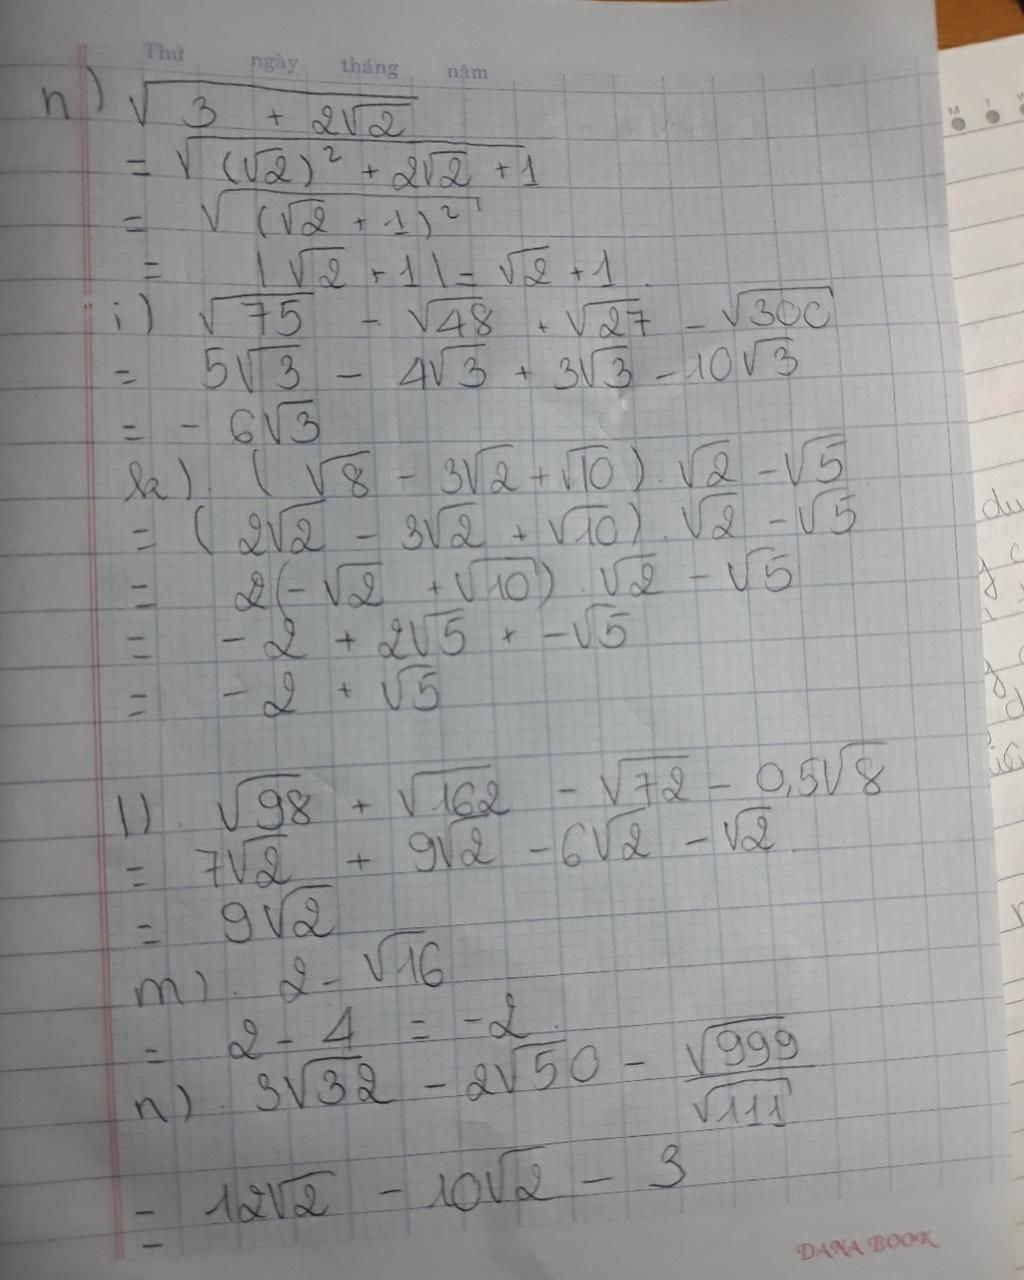 Thứ ngày tháng năm
n) √(3 + 2√2)
= √((√2)² + 2√2 + 1)
= √((√2 + 1)²)
= |√2 + 1| = √2 + 1.
i) √75 - √48 + √27 - √300
= 5√3 - 4√3 + 3√3 - 10√3
= - 6√3
k) (√8 - 3√2 + √10) . √2 - √5
= (2√2 - 3√2 + √10) . √2 - √5
= 2(-√2 + √10) . √2 - √5
= - 2 + 2√5 + -√5
= - 2 + √5
l) √98 + √162 - √72 - 0,5√8
= 7√2 + 9√2 - 6√2 - √2.
= 9√2
m) . 2 - √16
= 2 - 4 = -2.
n) . 3√32 - 2√50 - √999/√111
= 12√2 - 10√2 - 3
=
DANA BOOK
M T